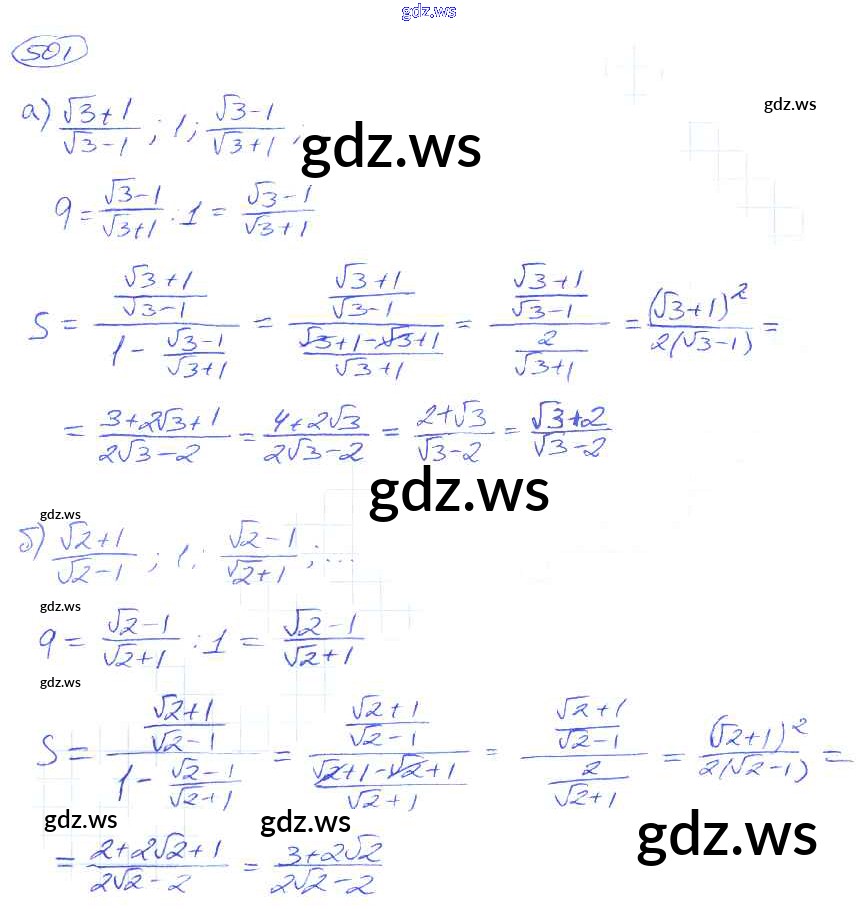 gdz.ws
501
gdz.ws
а) (√3+1)/(√3-1) ; 1; (√3-1)/(√3+1) ;
gdz.ws
q = (√3-1)/(√3+1) : 1 = (√3-1)/(√3+1)
S = ((√3+1)/(√3-1))/(1 - (√3-1)/(√3+1)) = ((√3+1)/(√3-1))/((√3+1-√3+1)/(√3+1)) = ((√3+1)/(√3-1))/(2/(√3+1)) = (√3+1)²/(2(√3-1)) =
= (3+2√3+1)/(2√3-2) = (4+2√3)/(2√3-2) = (2+√3)/(√3-2) = (√3+2)/(√3-2)
gdz.ws
gdz.ws
б) (√2+1)/(√2-1) ; 1; (√2-1)/(√2+1) ; ...
gdz.ws
q = (√2-1)/(√2+1) : 1 = (√2-1)/(√2+1)
gdz.ws
S = ((√2+1)/(√2-1))/(1 - (√2-1)/(√2+1)) = ((√2+1)/(√2-1))/((√2+1-√2+1)/(√2+1)) = ((√2+1)/(√2-1))/(2/(√2+1)) = (√2+1)²/(2(√2-1)) =
gdz.ws gdz.ws gdz.ws
= (2+2√2+1)/(2√2-2) = (3+2√2)/(2√2-2)